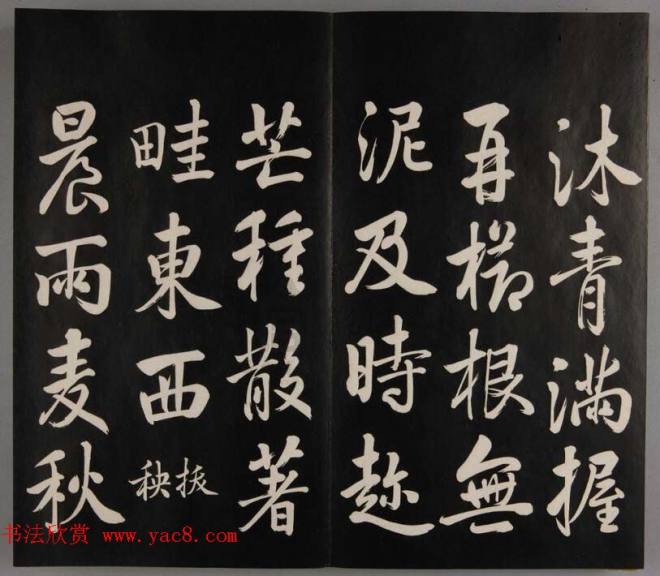 沐青满握
再櫛根無
泥及時趂
芒種散著
畦東西
拔秧
晨雨麦秋
书法欣赏 www.yac8.com